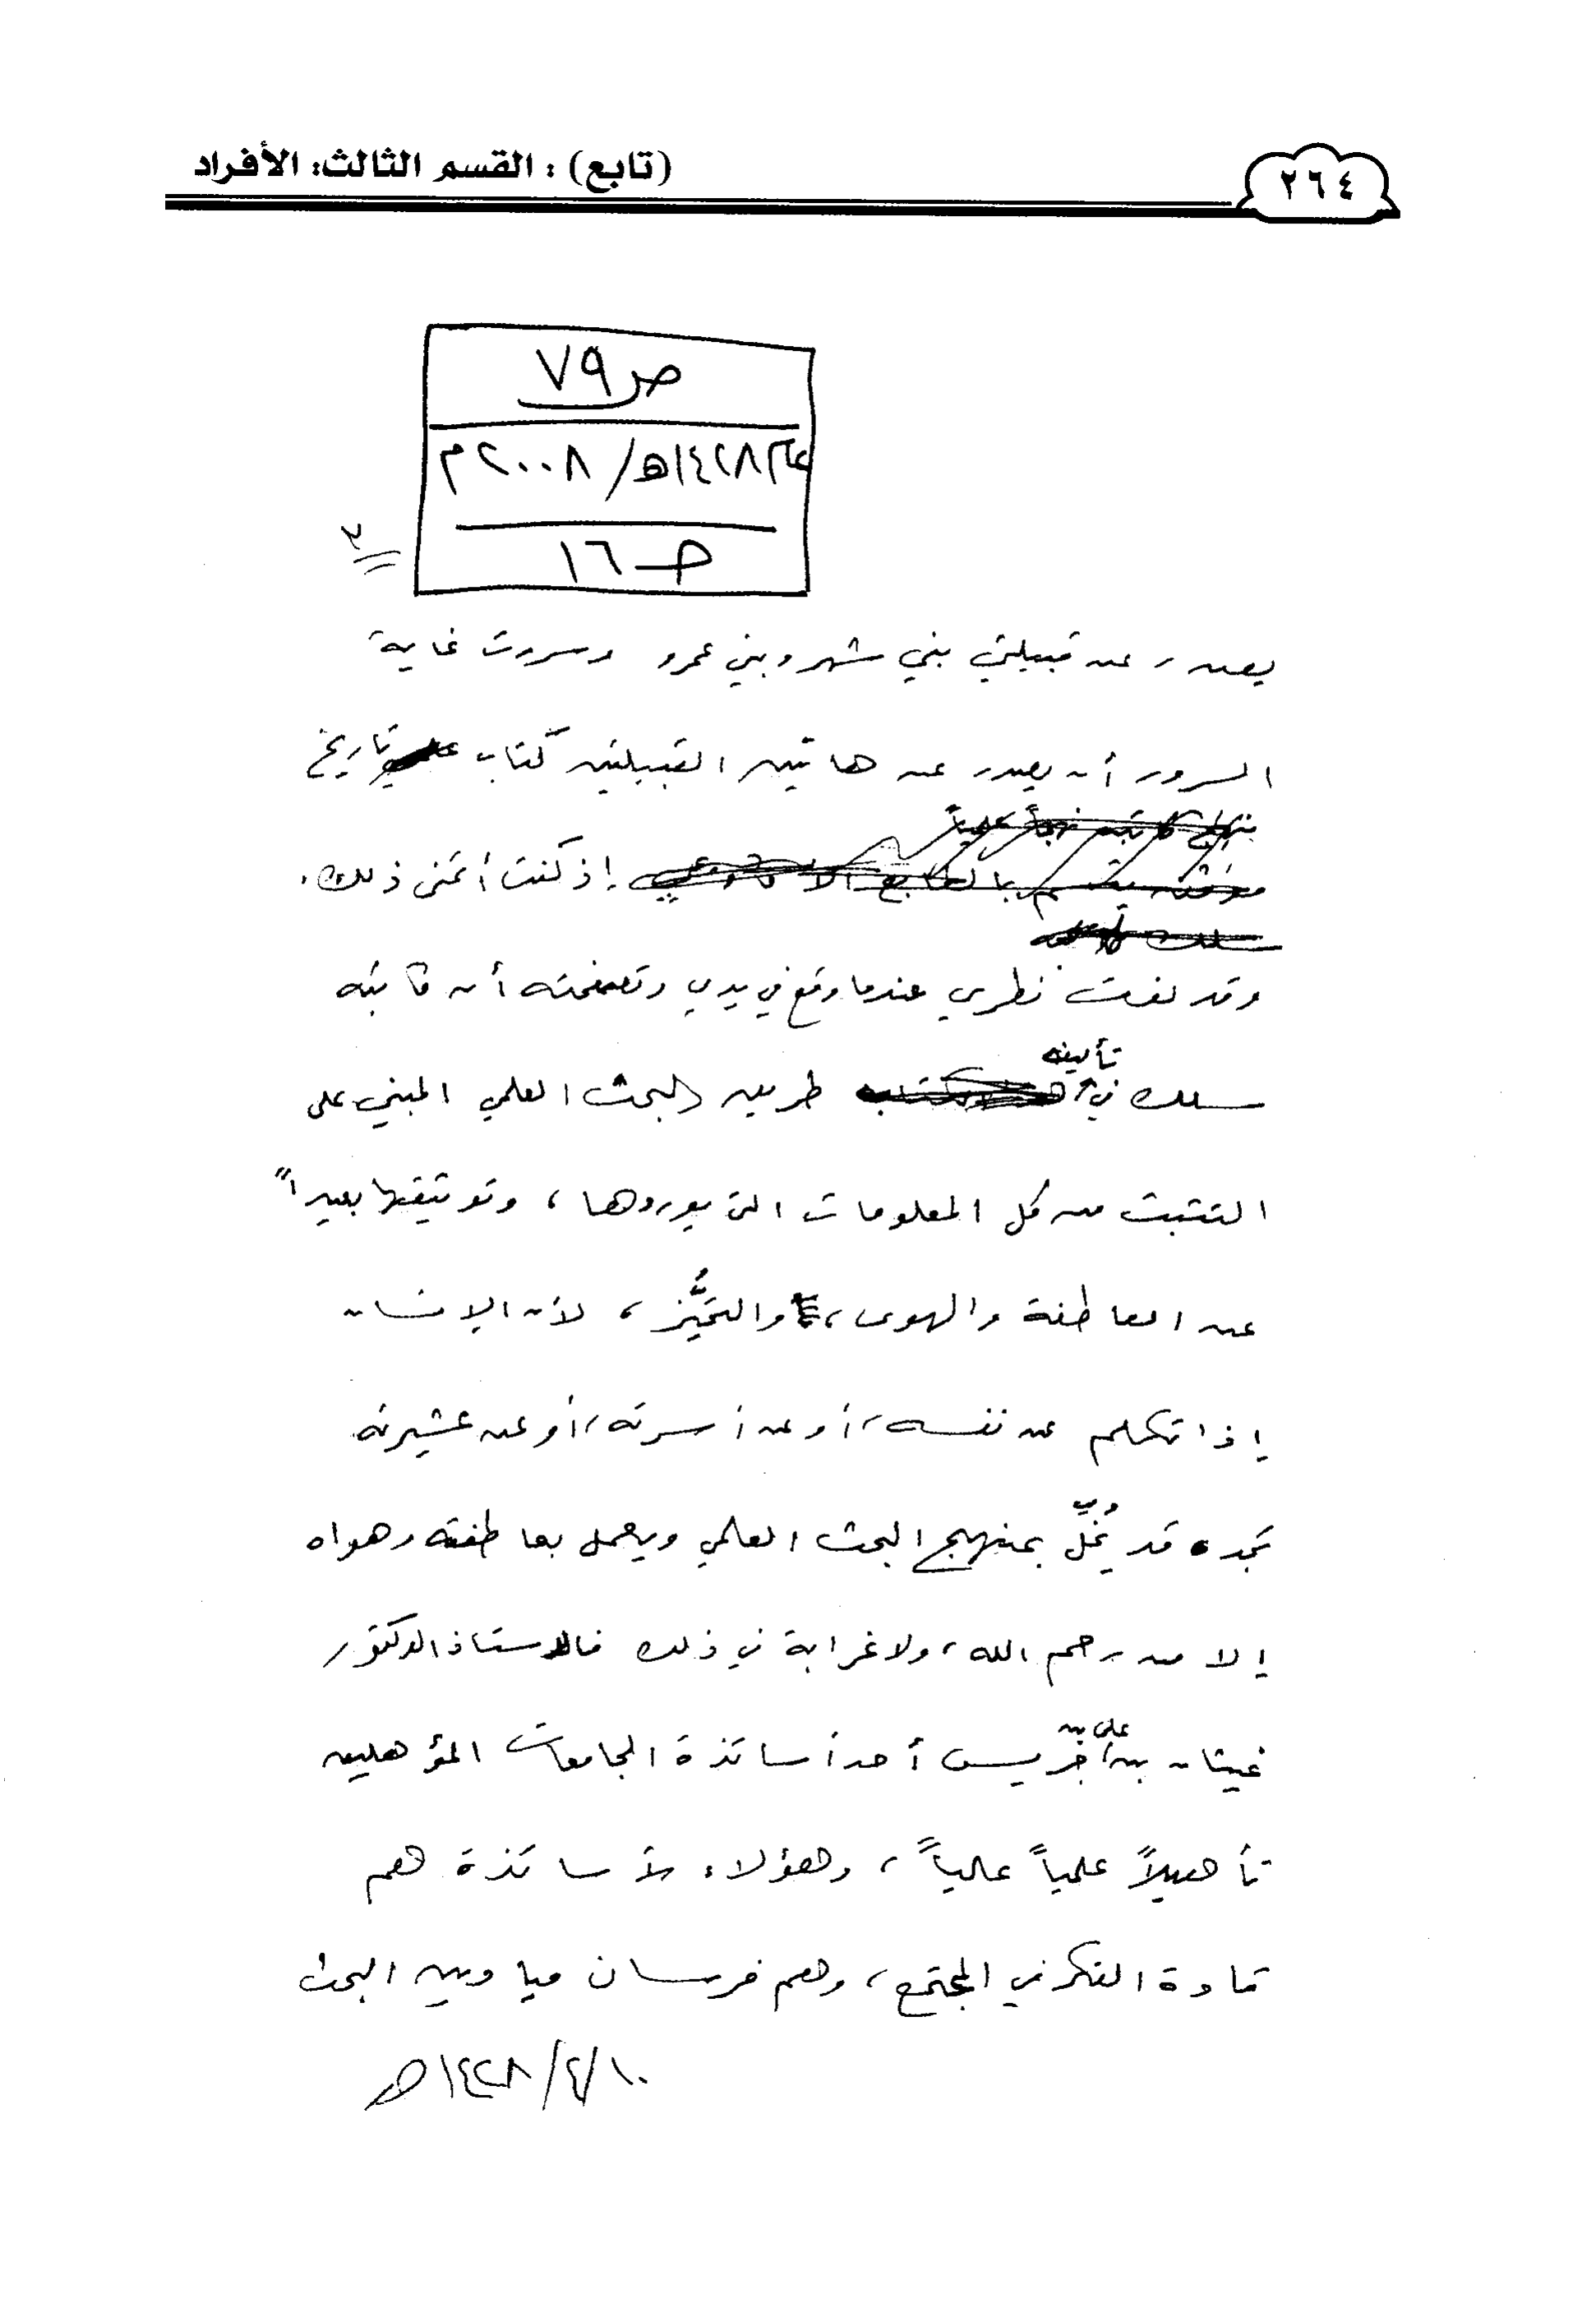 ٢٦٤
(تابع) : القسم الثالث: الأفراد
ص ٧٩
١٤٢٨هـ / ٢٠٠٨م
حـ ١٦
٢
يصدر عن قبيلتي بني شهر وبني عمرو وسررت غاية
السرور أن يصدر عن هاتين القبيلتين كتاب تاريخ
إذ كنت أتمنى ذلك.
وقد لفت نظري عندما وقع في يدي وتصفحته أن كاتبه
سلك في تأليفه طريق البحث العلمي المبني على
التثبت من كل المعلومات التي يوردها، وتوثيقها بعيداً
عن العاطفة والهوى، والتحيُّز، لأن الإنسان
إذا تكلم عن نفسه، أو عن أسرته، أو عن عشيرته
تجده قد يُخلّ بمنهج البحث العلمي ويعمل بعاطفته وهواه
إلا من رحم الله، ولا غرابة في ذلك فالاستاذ الدكتور
غيثان بن علي بن جريس أحد أساتذة الجامعات المؤهلين
تأهيلاً علمياً عالياً، وهؤلاء الأساتذة هم
قادة الفكر في المجتمع، وهم فرسان ميادين البحث
١٠/٤/١٤٢٨هـ